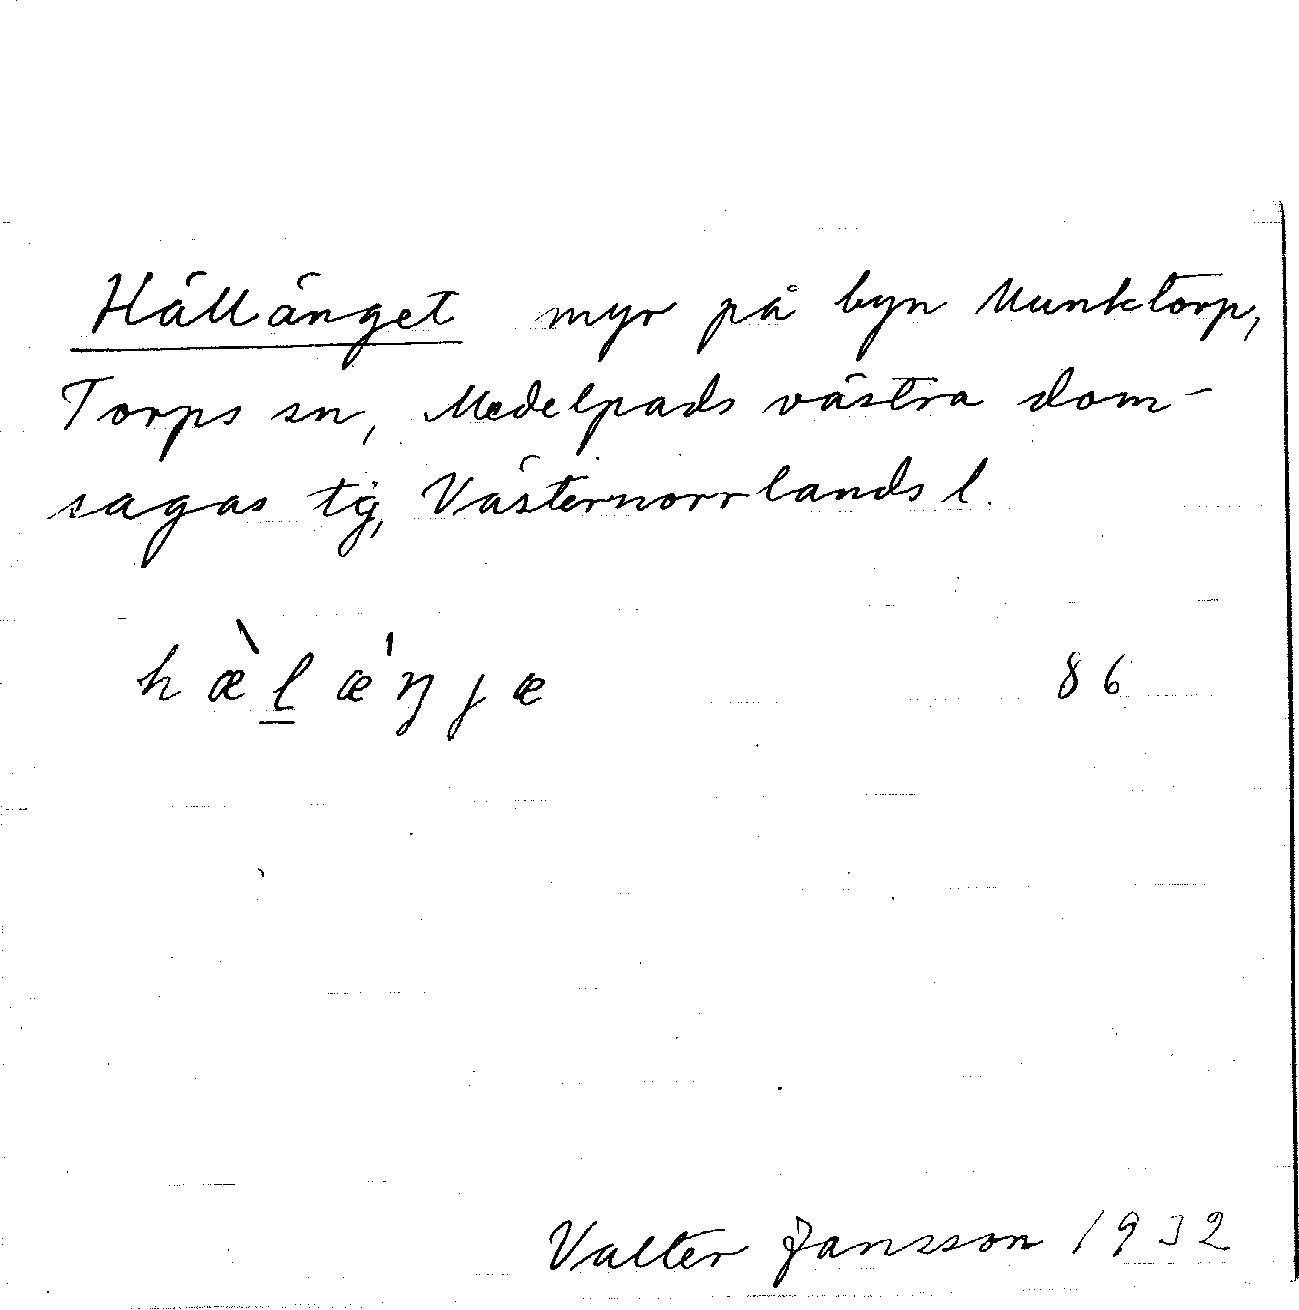 Hällänget myr på byn Munktorp,
Torps sn, Medelpads västra dom-
sagas tg, Västernorrlands l.
hæ̀l̲æ'ŋjæ 86
Valter Jansson 1932